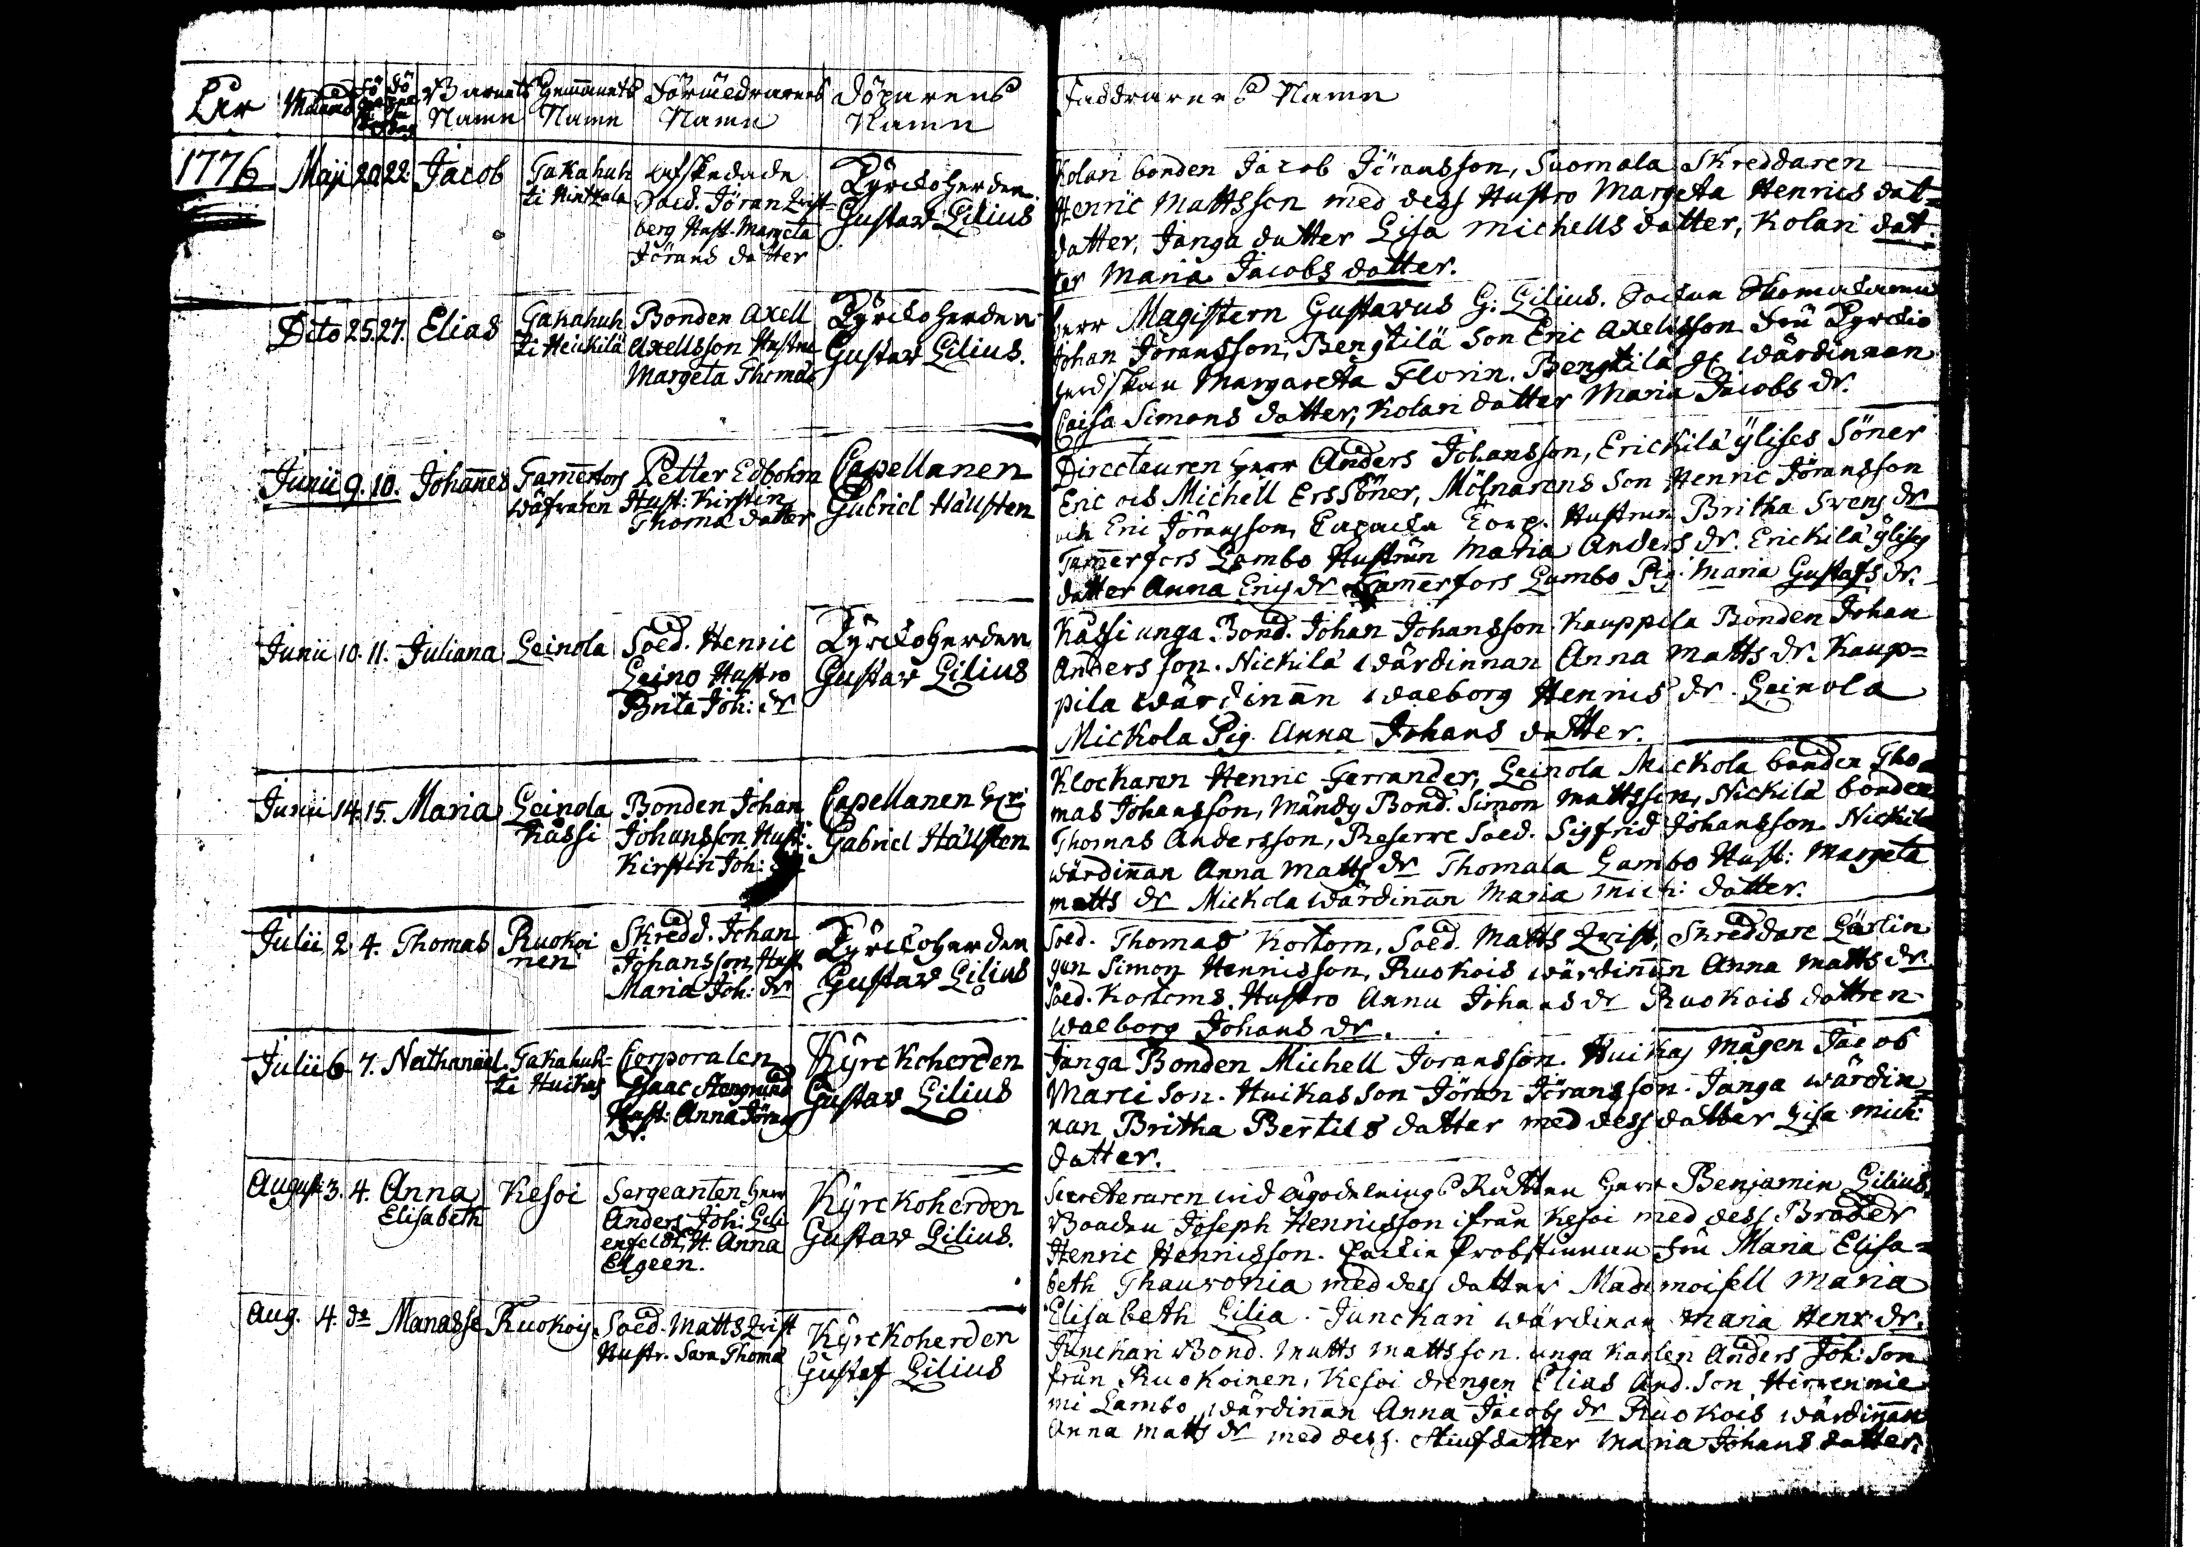 Åhr Månad Barnets Hemmanets Föräldrarnes Döparens
Namn Namn Namn Namn
1776 Maji 20. 22. Jacob Takahuh afskedade Kyrckoherden
ti Sold. Jöran Qvist
berg Hust. Margeta Gustav Lilius
Jörans datter
Dito 25. 27. Elias Takahuh Bonden Axell Kyrckoherden
ti Heickilä Axellsson Hustru Gustav Lilius.
Margeta Thomas
Junii 9. 10. Johannes Tamerfors Petter Edbohm Capellanen
Wäfvaren Hust: Kirstin Gabriel Hällsten
Thoma datter
Junii 10. 11. Juliana Leinola Sold. Henric Kyrckoherden
Leino Hustro Gustav Lilius
Brita Joh: dr
Junii 14. 15. Maria Leinola Bonden Johan Capellanen
Kässi Johansson Hust: Gabriel Hällsten
Kirstin Joh:
Julii 2 4. Thomas Ruokoi Skredd. Johan Kyrckoherden
nen Johansson, Hust Gustav Lilius
Maria Joh: dr
Julii 6 7. Nathanael Takahuh= Corporalen Kyrckoherden
ti Huikas Isaac Stengrund Gustav Lilius
Hust: Anna Jörans
dr.
August 3. 4. Anna Kesoi Sergeanten Herr Kyrckoherden
Elisabeth Anders Joh: Lili Gustav Lilius.
enfeldt, H. Anna
Elgeen.
Aug. 4. do Manasse Ruokois. Sold. Matts Qvist Kyrckoherden
Hustr. Sara Thoma Gustaf Lilius
Faddrarnes Namn
Kolari bonden Jacob Jöransson, Suomala Skreddaren
Henric Mattsson med dess Hustro Margeta Henrics dat=
datter, Janga datter Lisa Michells datter, Kolari dat=
ter Maria Jacobs datter.
Herr Magistern Gustavus G: Lilius.
Johan Jöransson, Bengtilä Son Eric Axellsson Fru Kyrcko
herdskan Margareta Florin. Bengtilä wärdinnan
Caisa Simons datter, Kolari datter Maria Jacobs dr.
Directeuren Herr Anders Johansson, Erickilä ylises Söner
Eric och Michell Ers Söner, Mölnarens Son Henric Jöransson
och Eric Jöransson, Corp. Hustrun Britha Svens dr
Tamerfors Lambo Hustrun Maria Anders dr. Erickilä ylises
datter Anna Erics dr Tamerfors Lambo Pig. Maria Gustafs dr.
Kässi unga Bond. Johan Johansson Kauppila Bonden Johan
Andersson. Nickilä wärdinnan Anna Matts dr. Kaup=
pila wärdinan Walborg Henrics dr. Leinola
Mickola Pig. Anna Johans datter.
Klockaren Henric Ferrander, Leinola Mickola bonden Tho
mas Johansson, Mändy Bond. Simon Mattsson, Nickilä bonden
Thomas Andersson, Reserve Sold. Sigfrid Johansson Nickilä
wärdinan Anna Matts dr Thomala Lambo Hust: Margeta
matts dr Mickola wärdinan Maria Mich: datter.
Sold. Thomas Kortom, Sold. Matts Qvist, Skreddare Lärlin
gen Simon Henricsson, Ruokois wärdinan Anna Matts dr.
Sold. Kortoms Hustro Anna Johans dr Ruokois dottren
Walborg Johans dr.
Janga Bonden Michell Joransson. Huikas Mågen Jacob
Marci Son. Huikas Son Jöran Jöransson. Janga wärdin=
nan Britha Bertils datter med dess datter Lisa Mich:
datter.
Secreteraren wid ägodelnings Rätten Herr Benjamin Lilius,
Bonden Joseph Henricsson ifrån Kesoi med dess Broder
Henric Henricsson. Probstinnan Fru Maria Elisa=
beth Thauvonia med dess datter Mademoisell Maria
Elisabeth Lilia. Junckari wärdinan Maria Henr dr.
Junckari Bond. Matts Mattsson. unga Karlen Anders Joh: Son
från Ruokoinen, Kesoi drengen Elias And. Son, Hirvennie
mi Lambo wärdinan Anna Jacobs dr Ruokois wärdinan
Anna Matts dr med dess Stiufdatter Maria Johans datter.